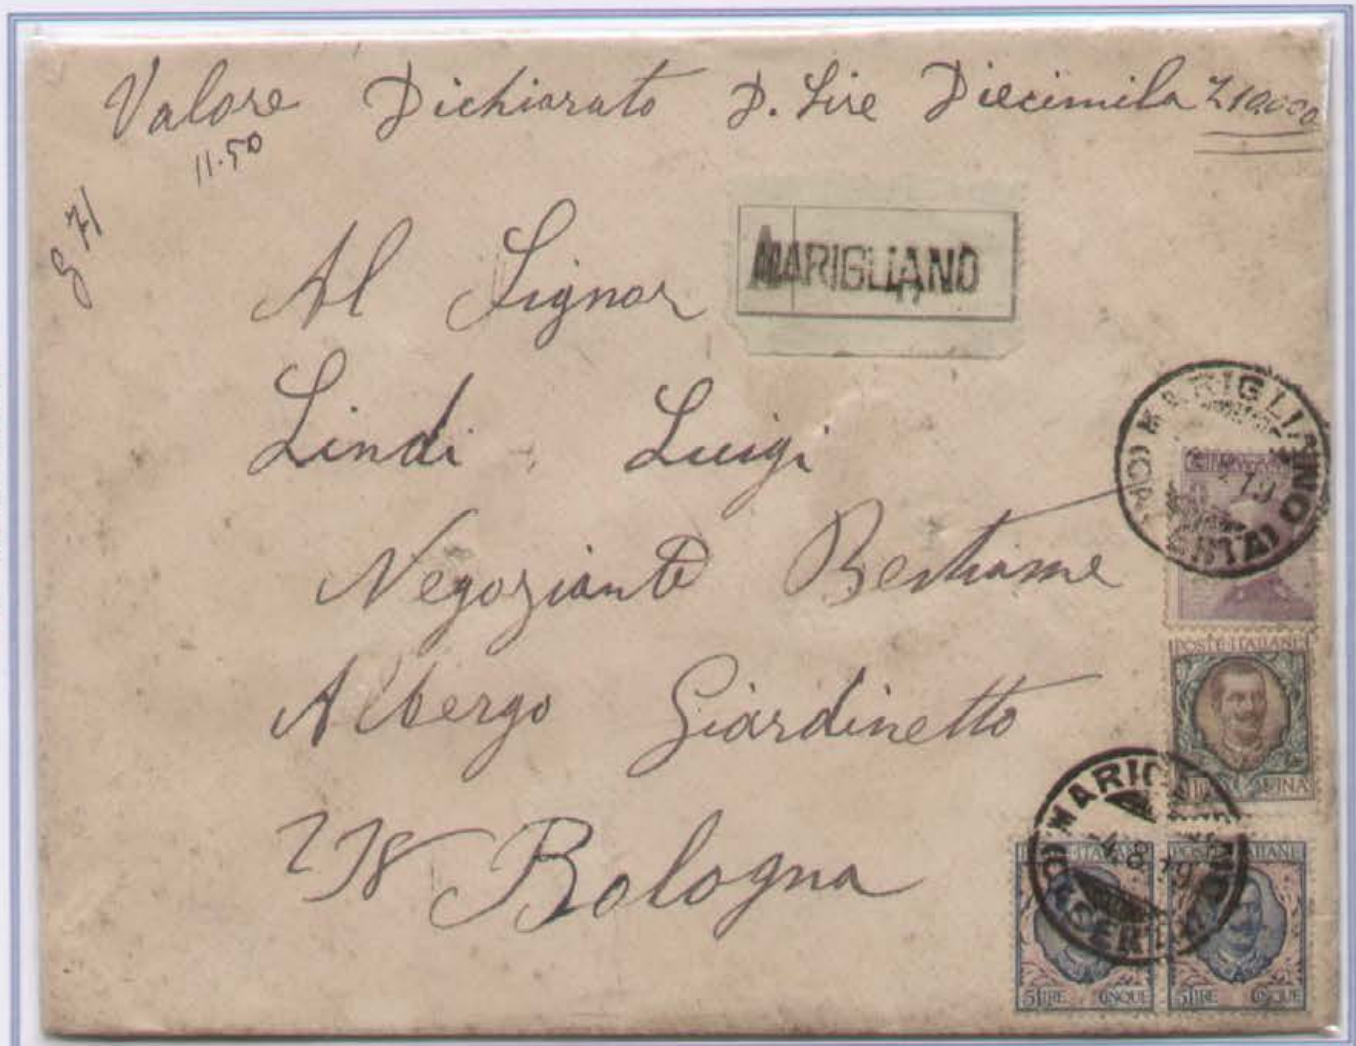 Valore Dichiarato D. Lire Diecimila £10000
11.50
g 71
MARIGLIANO
Al Signor
Lindi Luigi
Negoziante Bestiame
Albergo Giardinetto
278 Bologna
MARIGLIANO (CASERTA)
POSTE ITALIANE
MARIGLIANO (CASERTA)
4.8.19
POSTE ITALIANE
5 LIRE CINQUE
POSTE ITALIANE
5 LIRE CINQUE